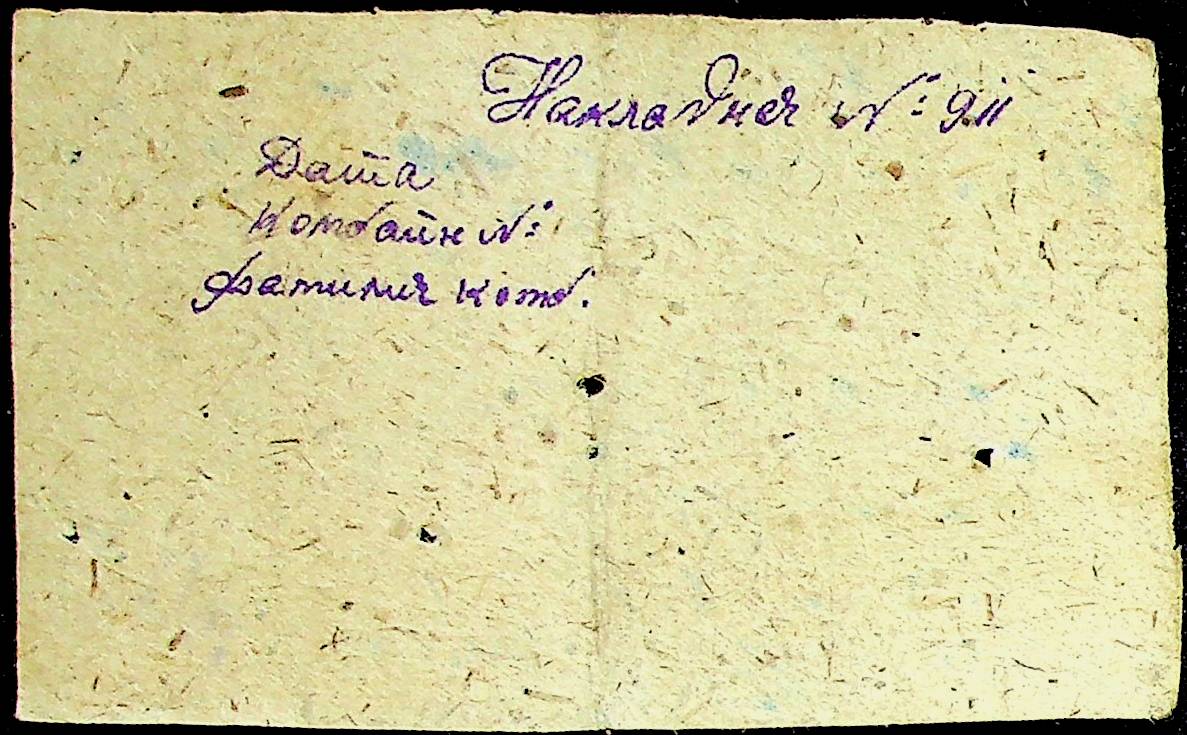 Накладная №: 911
Дата
Комбайн №:
фамилия комб.